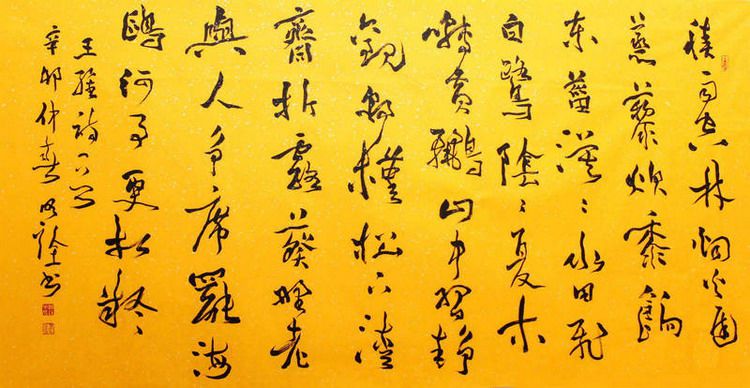 積雨空林烟火遲
蒸藜炊黍餉
東菑漠〻水田飛
白鷺陰〻夏木
囀黃鸝山中習靜
觀朝槿松下清
齋折露葵野老
與人爭席罷海
鷗何事更相疑
王維詩一首
辛卯仲春 書